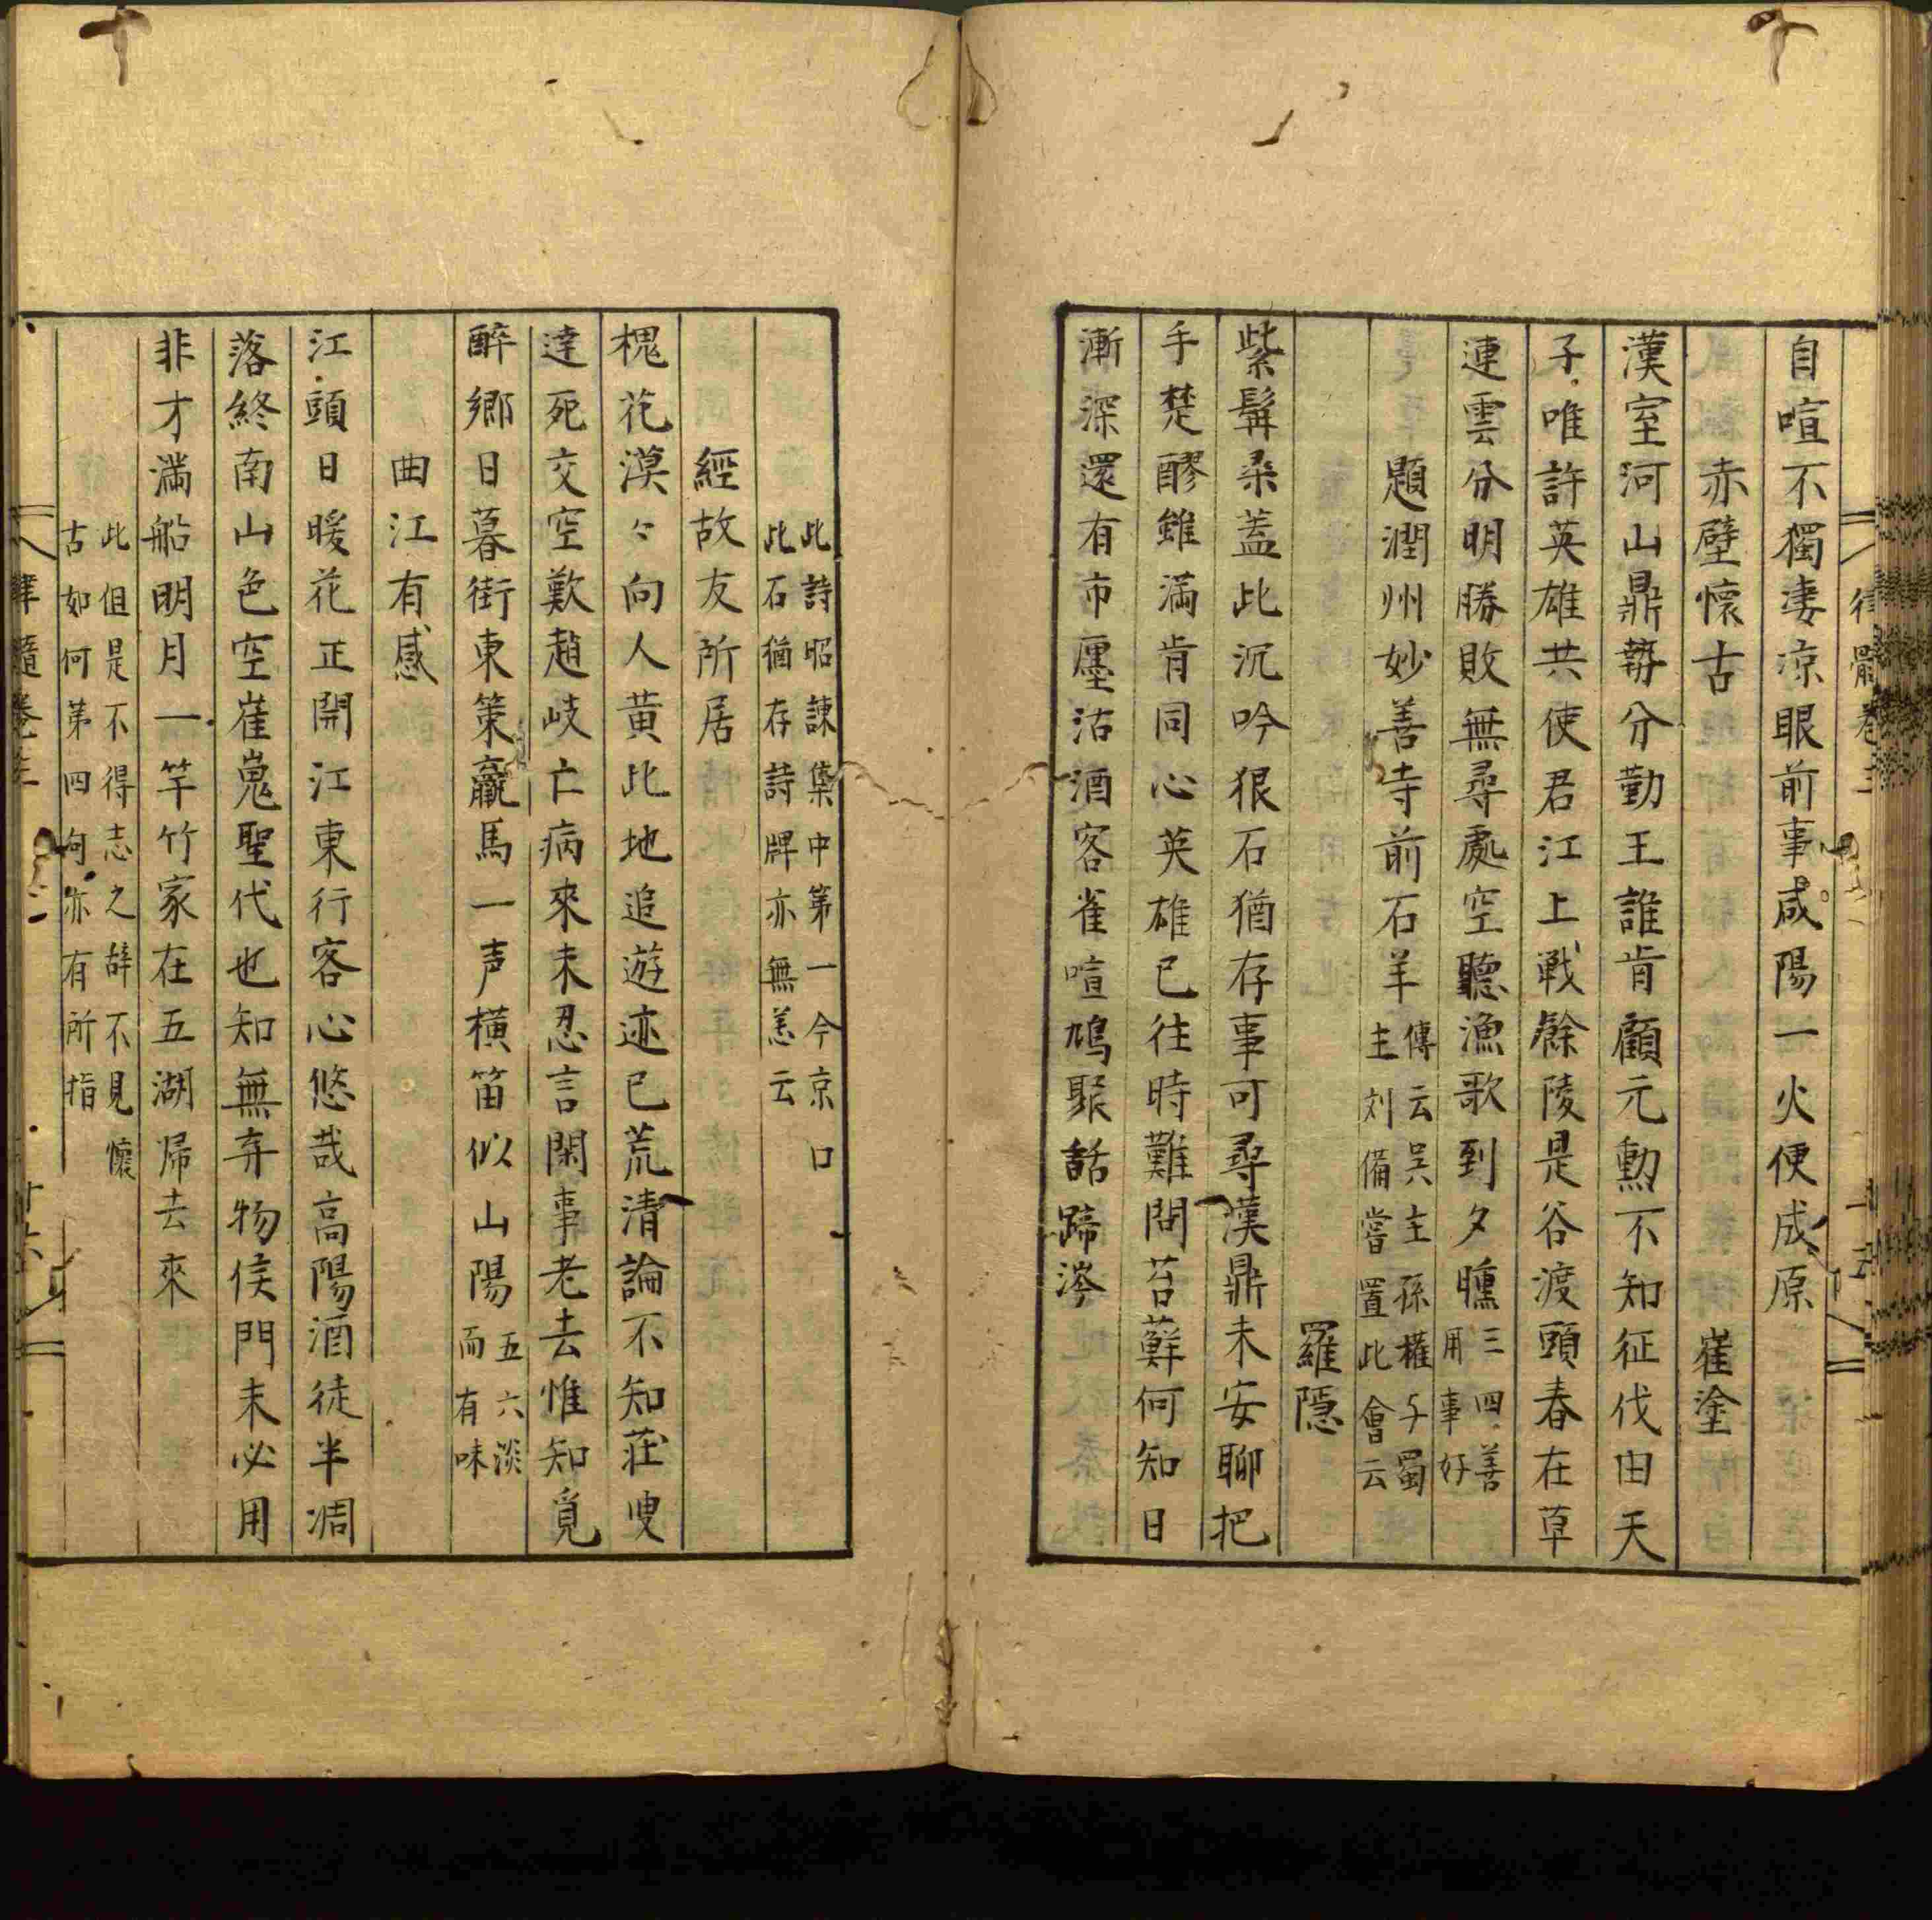 自喧不獨淒涼眼前事咸陽一火便成原
赤壁懷古 崔塗
漢室河山鼎勢分勤王誰肯顧元勳不知征伐由天
子唯許英雄共使君江上戰餘陵是谷渡頭春在草
連雲分明勝敗無尋處空聽漁歌到夕曛三四善
用事好
題潤州妙善寺前石羊傳云吳主孫權与蜀
主刘備嘗置此會云
羅隱
紫髯桑蓋此沉吟狠石猶存事可尋漢鼎未安聊把
手楚醪雖滿肯同心英雄已往時難問苔蘚何知日
漸深還有市廛沽酒客雀喧鳩聚話蹄涔
此詩昭諫集中第一今京口
此石猶存詩牌亦無恙云
經故友所居
槐花漠〻向人黃此地追遊迹已荒清論不知莊叟
達死交空歎趙岐亡病來未忍言閑事老去惟知覓
醉鄉日暮街東策羸馬一声橫笛似山陽五六淡
而有味
曲江有感
江頭日暖花正開江東行客心悠哉高陽酒徒半凋
落終南山色空崔嵬聖代也知無弃物侯門未必用
非才滿船明月一竿竹家在五湖歸去來
此但是不得志之辞不見懷
古如何第四句亦有所指
律髓卷三